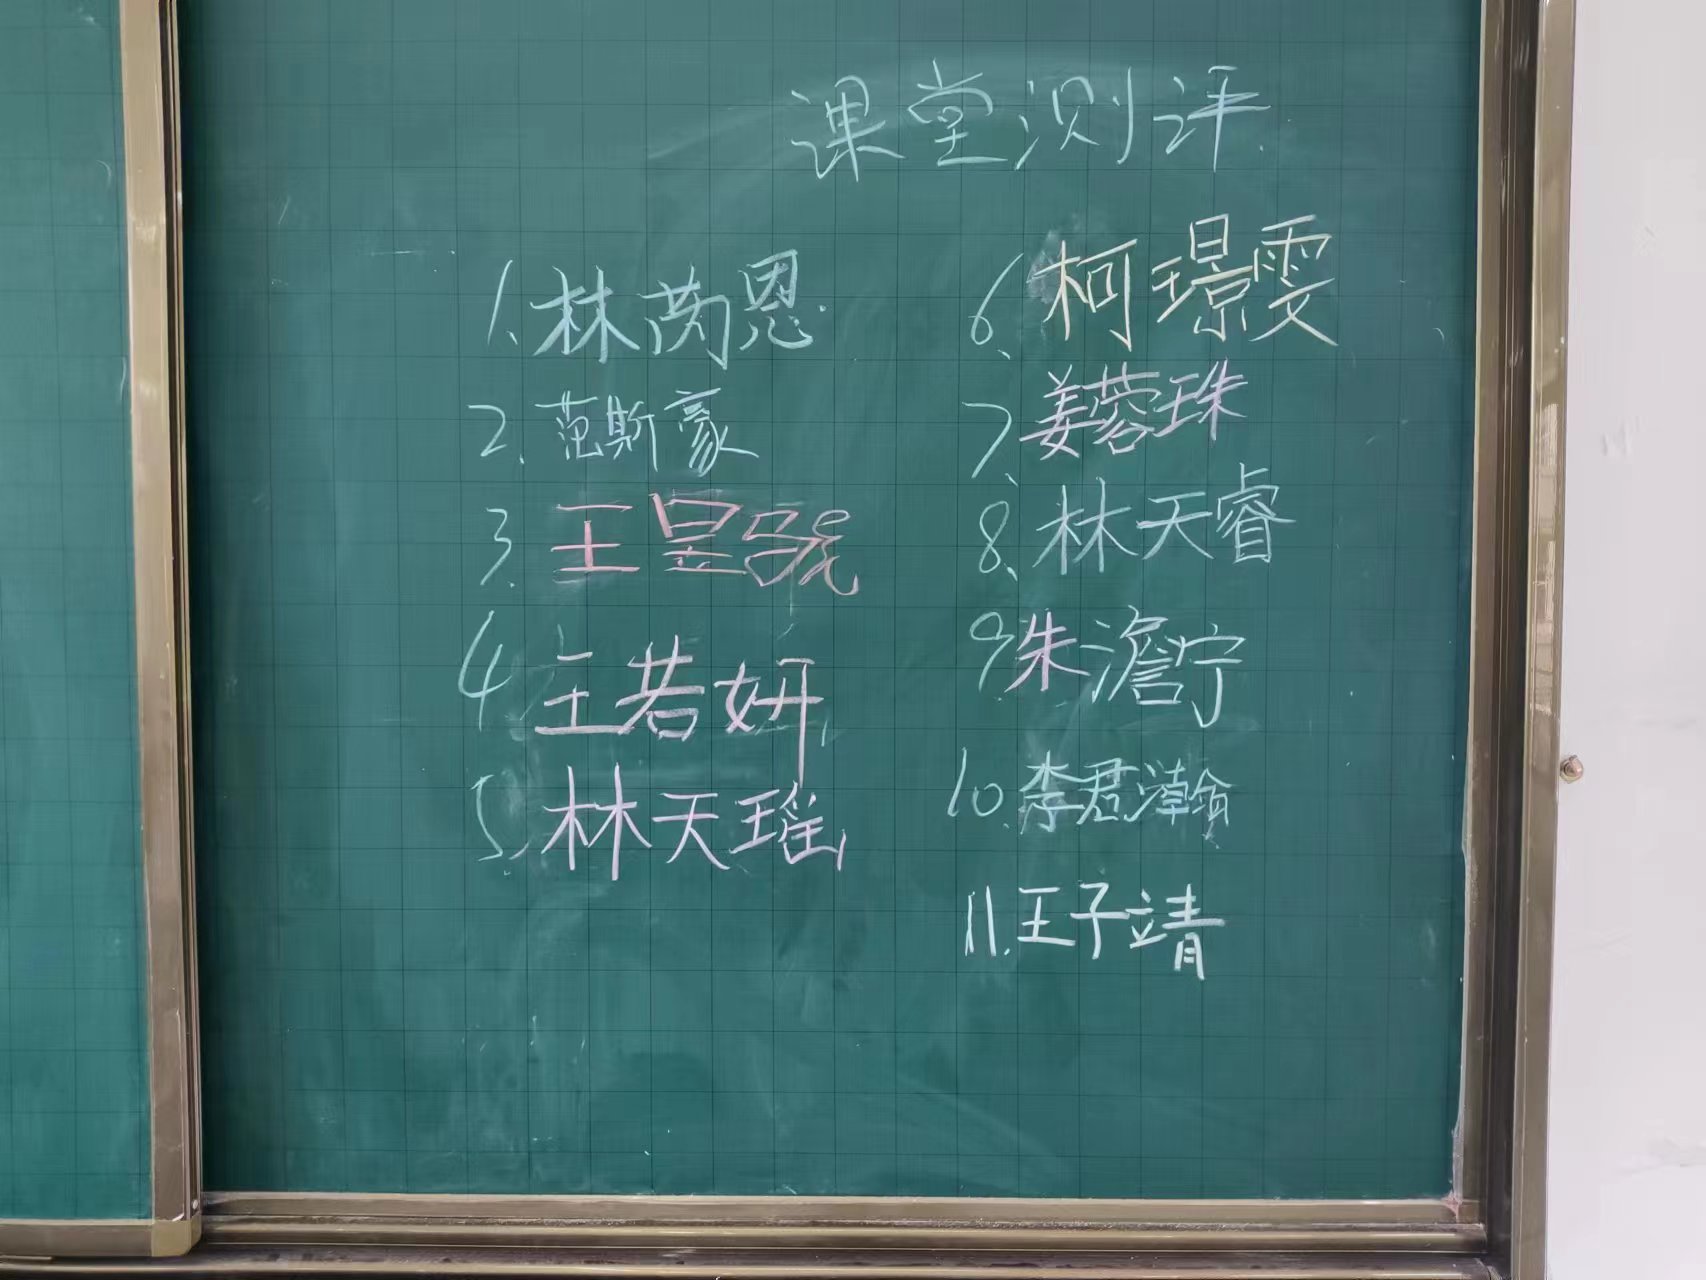 课堂测评
1、林芮恩
2、范斯豪
3、王昱
4、王若妍
5、林天瑶
6、柯璟雯
7、姜蓉珠
8、林天睿
9、朱澹宁
10、李君瀚
11、王子靖